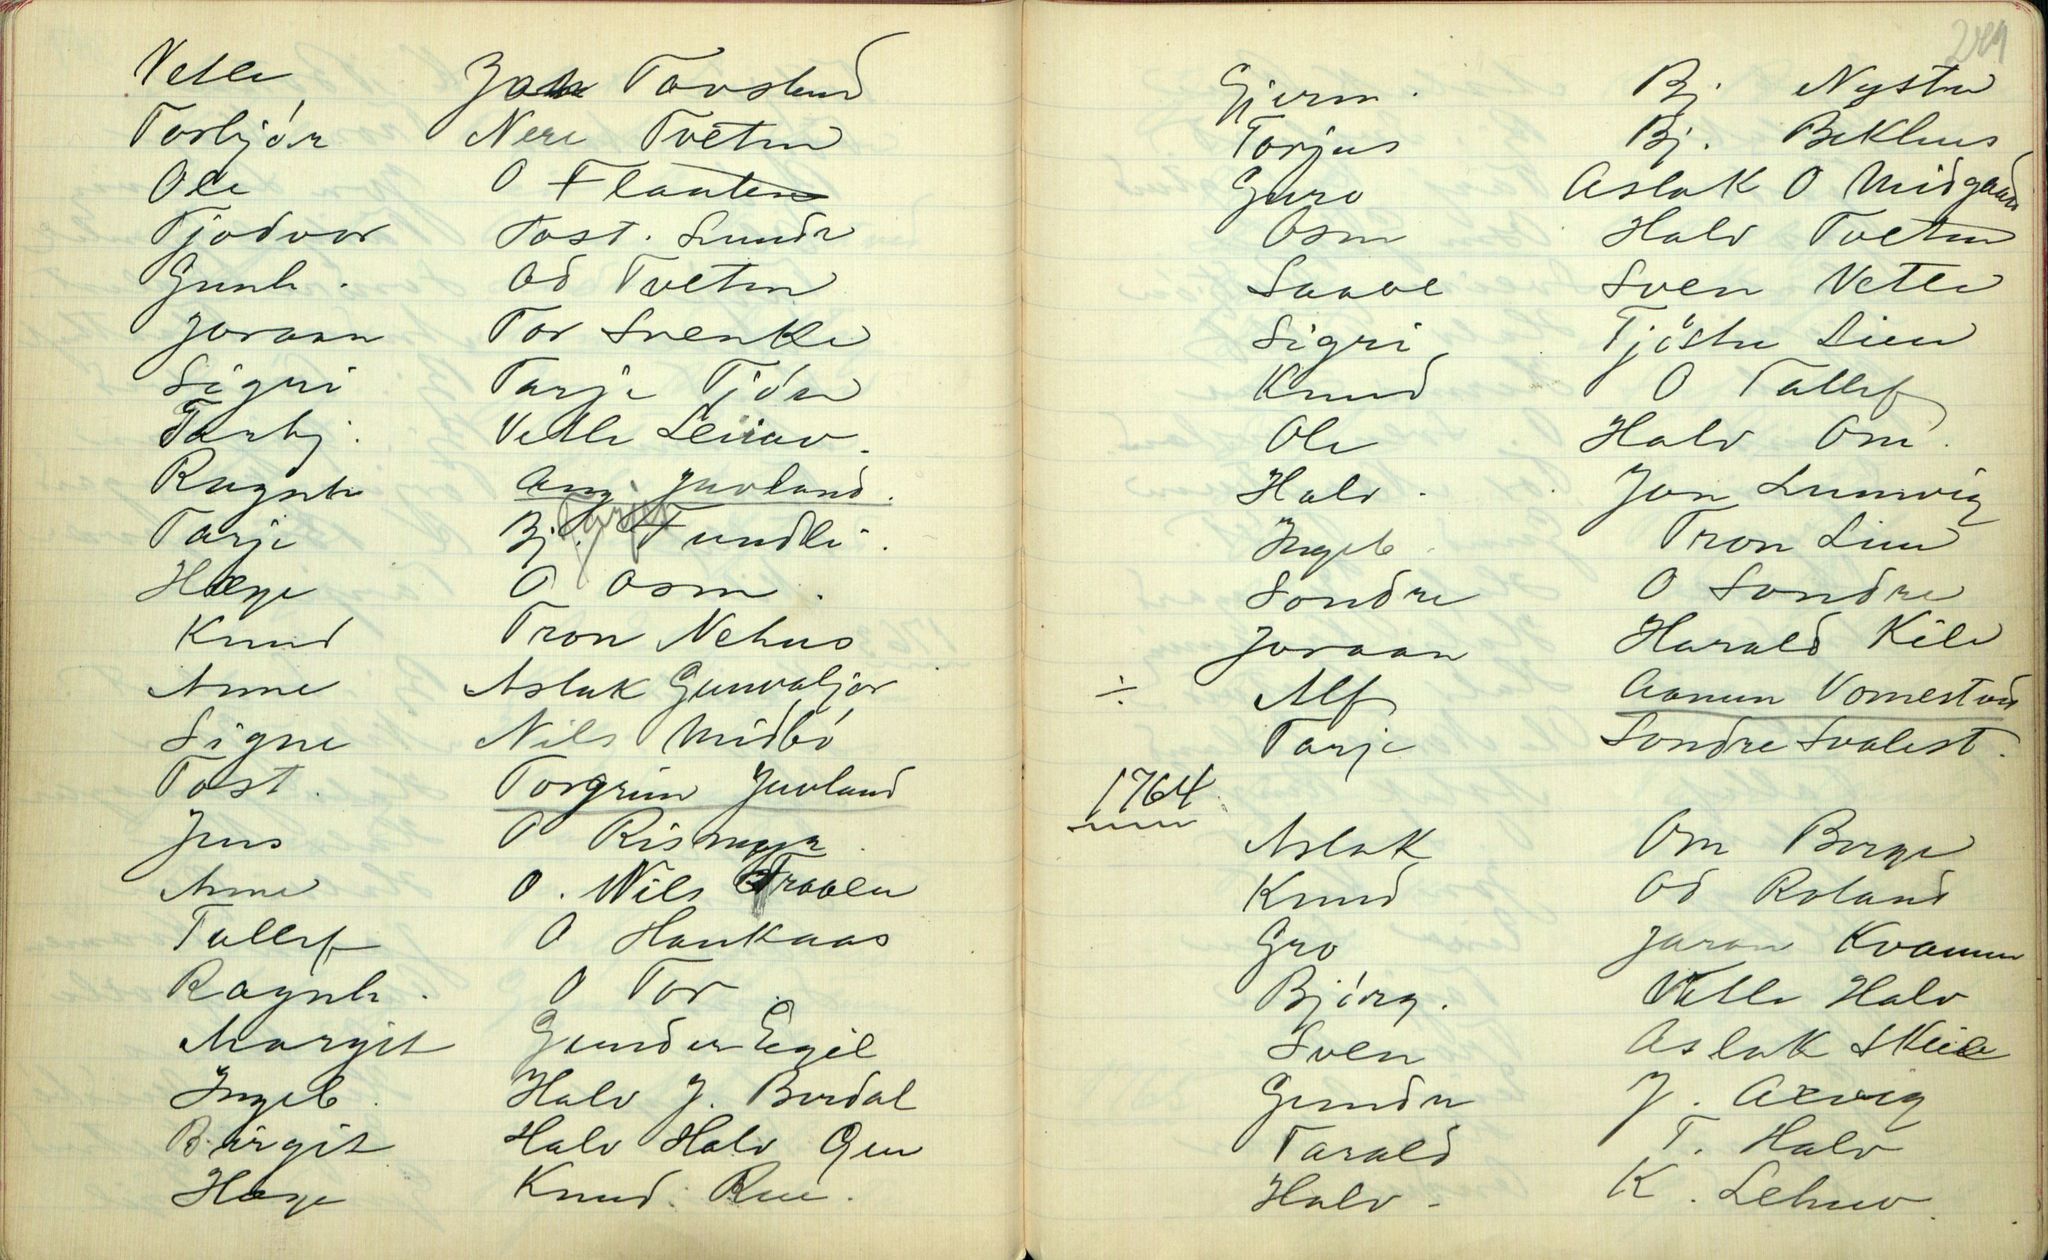 Vetle Jon Tovslund
Torbjør Neri Tveten
Ole O Flaaten
Tjodvor Tost. Sundr
Gunh. Od Tveten
Joraan Tor Svenke
Sigri Tarje Tjón
Torbj. Vetle Leirav
Ragnh Ang. Juvland.
Tarje
Tarje Bj. Tundli.
Hæge O Osm.
Knud Tron Nehus
Anne Aslak Gunvaljor
Signe Nils Midbó
Tost. Torgrim Juvland
Jens O Rismyr
Anne O. Nils Traaen
Tallef O Haukaas
Ragnh. O Tor
Margit Gunder Egil
Ingeb. Halv J. Berdal
Birgit Halv Halv Gen
Hæge Knud. Rue.
Gjerm. Bj. Nystu
Torjus Bj. Bekhus
Guro Aslak O Midgaard
Osm Halv Tveten
Saave Sven Vetle
Sigri Tjöstu Lien
Knud O Tallef
Ole Halv Om.
Halv. Jon Lunvig
Ingeb. Tron Lien
Sondre O Sondre
Joraan Harald Kile
÷ Alf Aanun Vomestad
Tarje Sondre Svalest.
1764
Aslak Om Berge
Knud Od Roland
Gro Jaran Kvamm
Bjórg. Vetle Halv
Sven Aslak Skeie
Gundr J. Axvig
Tarald T. Halv
Halv. K. Lehuv.